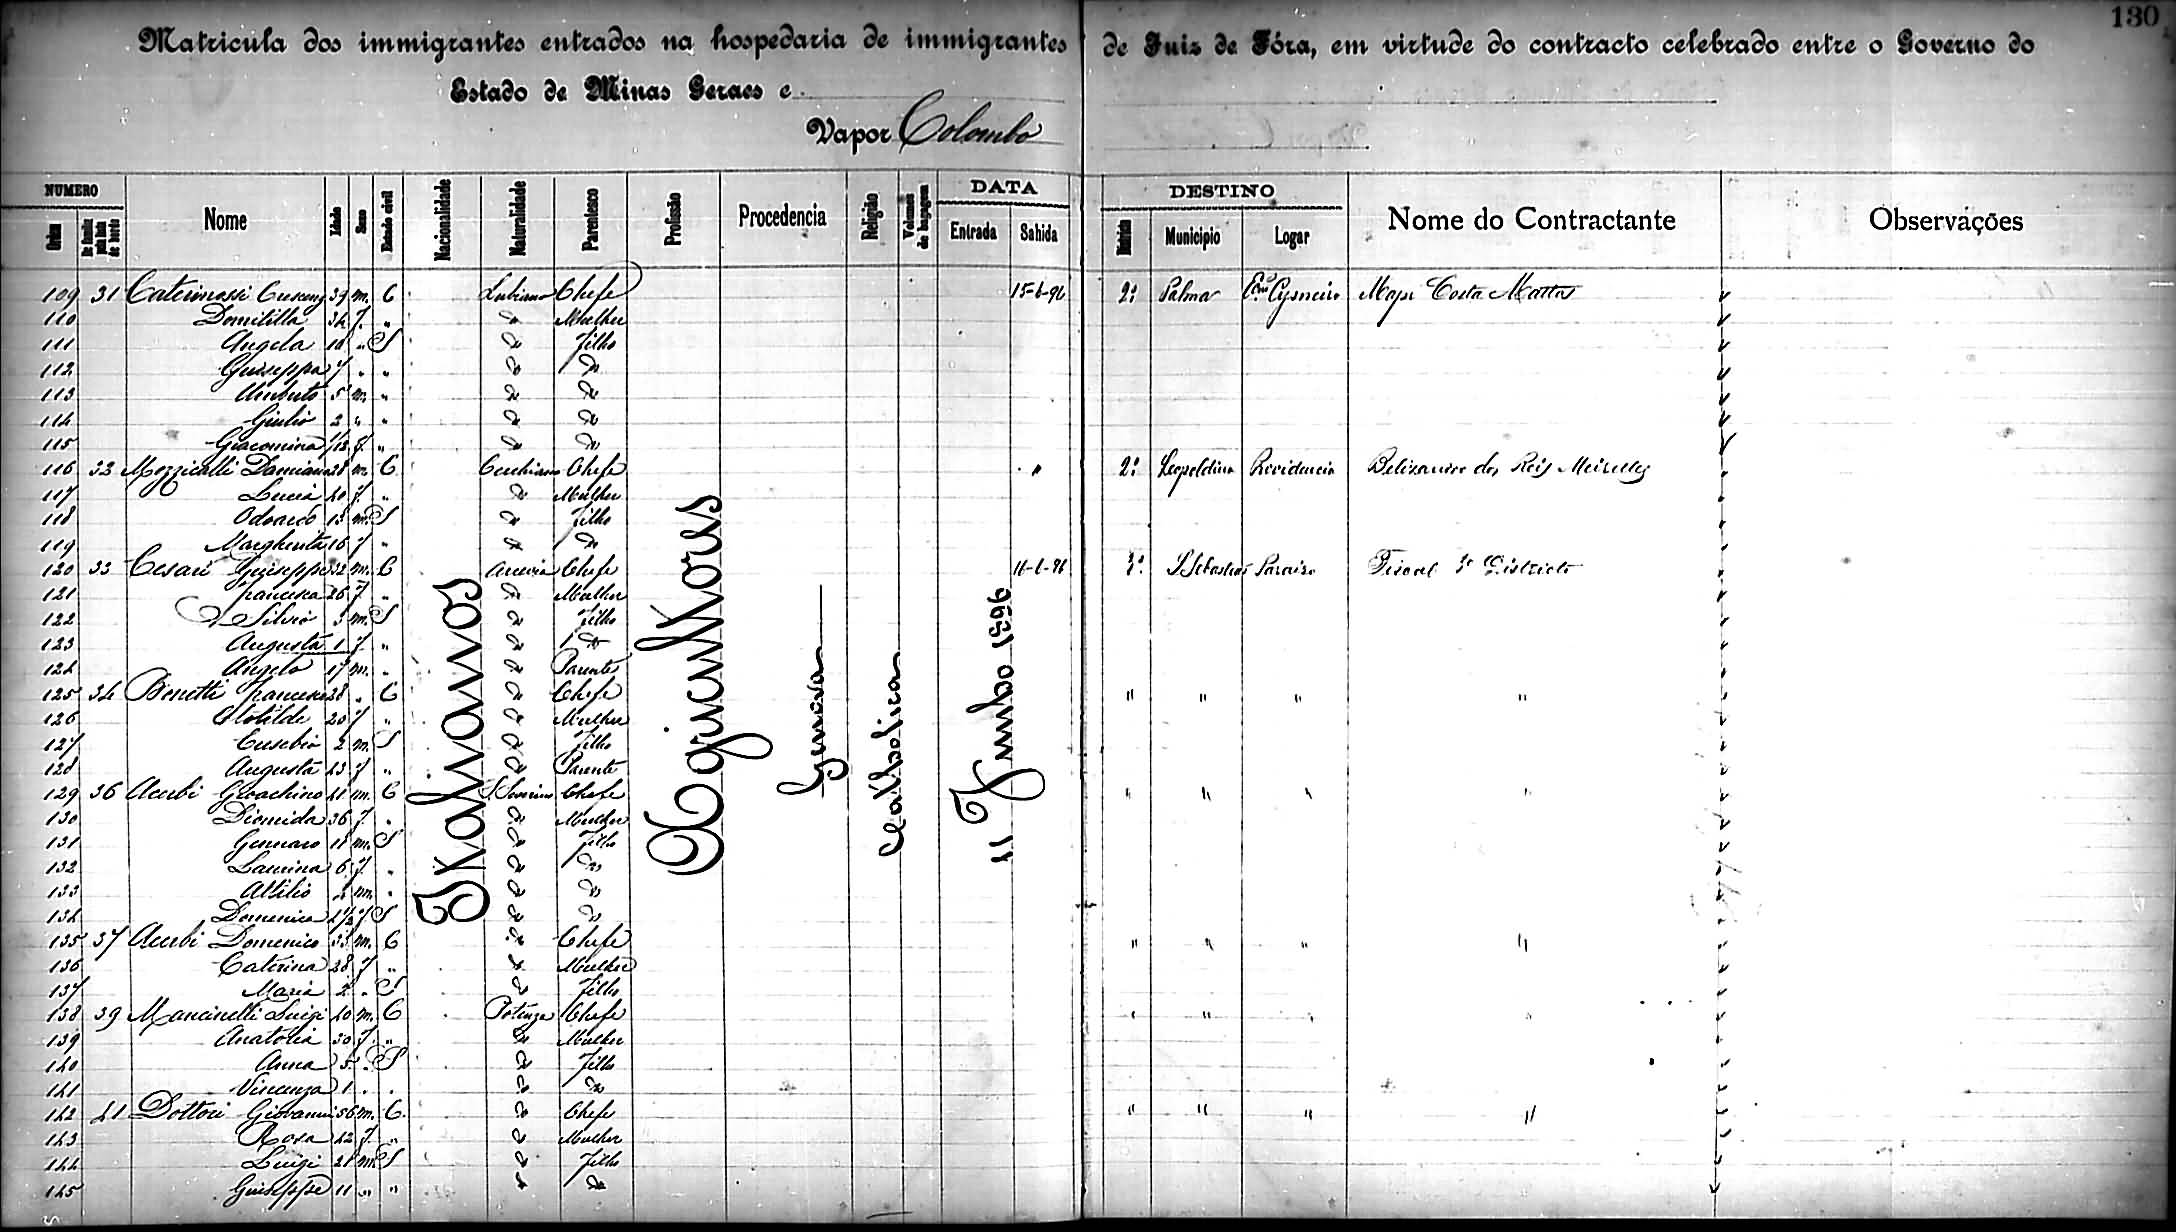 130
Matricula dos immigrantes entrados na hospedaria de immigrantes de Juiz de Fóra, em virtude do contracto celebrado entre o Governo do
Estado de Minas Geraes e
Vapor Colombo
NUMERO DATA DESTINO
Ordem Nome Idade Sexo Estado civil Nacionalidade Naturalidade Parentesco Profissão Procedencia Religião Volumes de bagagem Entrada Sahida Districto Municipio Logar Nome do Contractante Observações
Italianos Agricultores Genova Catholica 11 Junho 1896
109 31 39 m. C Chefe 15-6-96 2º Palma Cysneiro Major Costa Mattos
110 Domitilla 34 f. " Mulher
111 Angela 10 " S Filho
112 Guiseppa 7 " "
113 Umberto 5 m. "
114 Giulio 2 " "
115 Giacomina 1/12 f. "
116 32 Mozzicalli Damiano 28 m. C Chefe " 2º Leopoldina Providencia Belizandro dos Reis Meirelles
117 Lucia 40 f. " Mulher
118 Odoardo 13 m. S Filho
119 Margherita 16 f. "
120 33 Cesari Guiseppe 32 m. C Arcevia Chefe 16-6-96 3º S. Sebastião Paraiso Fiscal 3º Districto
121 Francesca 26 f. " Mulher
122 Silvio 3 m. S Filho
123 Augusta 1 f. "
124 Angelo 17 m. " Parente
125 34 Benetti Francesco 28 " C Chefe " " " "
126 Clotilde 20 f. " Mulher
127 Eusebio 2 m. S Filho
128 Augusta 43 f. " Parente
129 36 Acerbi Gioachino 41 m. C Chefe " " " "
130 Diomida 36 f. " Mulher
131 Gennaro 11 m. S Filho
132 6 f. "
133 Attilio m. "
134 Domenica f. S
135 37 Acerbi Domenico 33 m. C Chefe " " " "
136 Caterina 28 f. " Mulher
137 Maria 2 " S Filho
138 39 Mancinelli Luigi 40 m. C Potenza Chefe " " " "
139 Anatolia 30 f. " Mulher
140 Anna 5 " S Filho
141 Vincenza 1 " "
142 41 Dottori Giovanni 56 m. C Chefe " " " "
143 Rosa 42 f. " Mulher
144 Luigi 21 m. S Filho
145 Guiseppe 11 " "